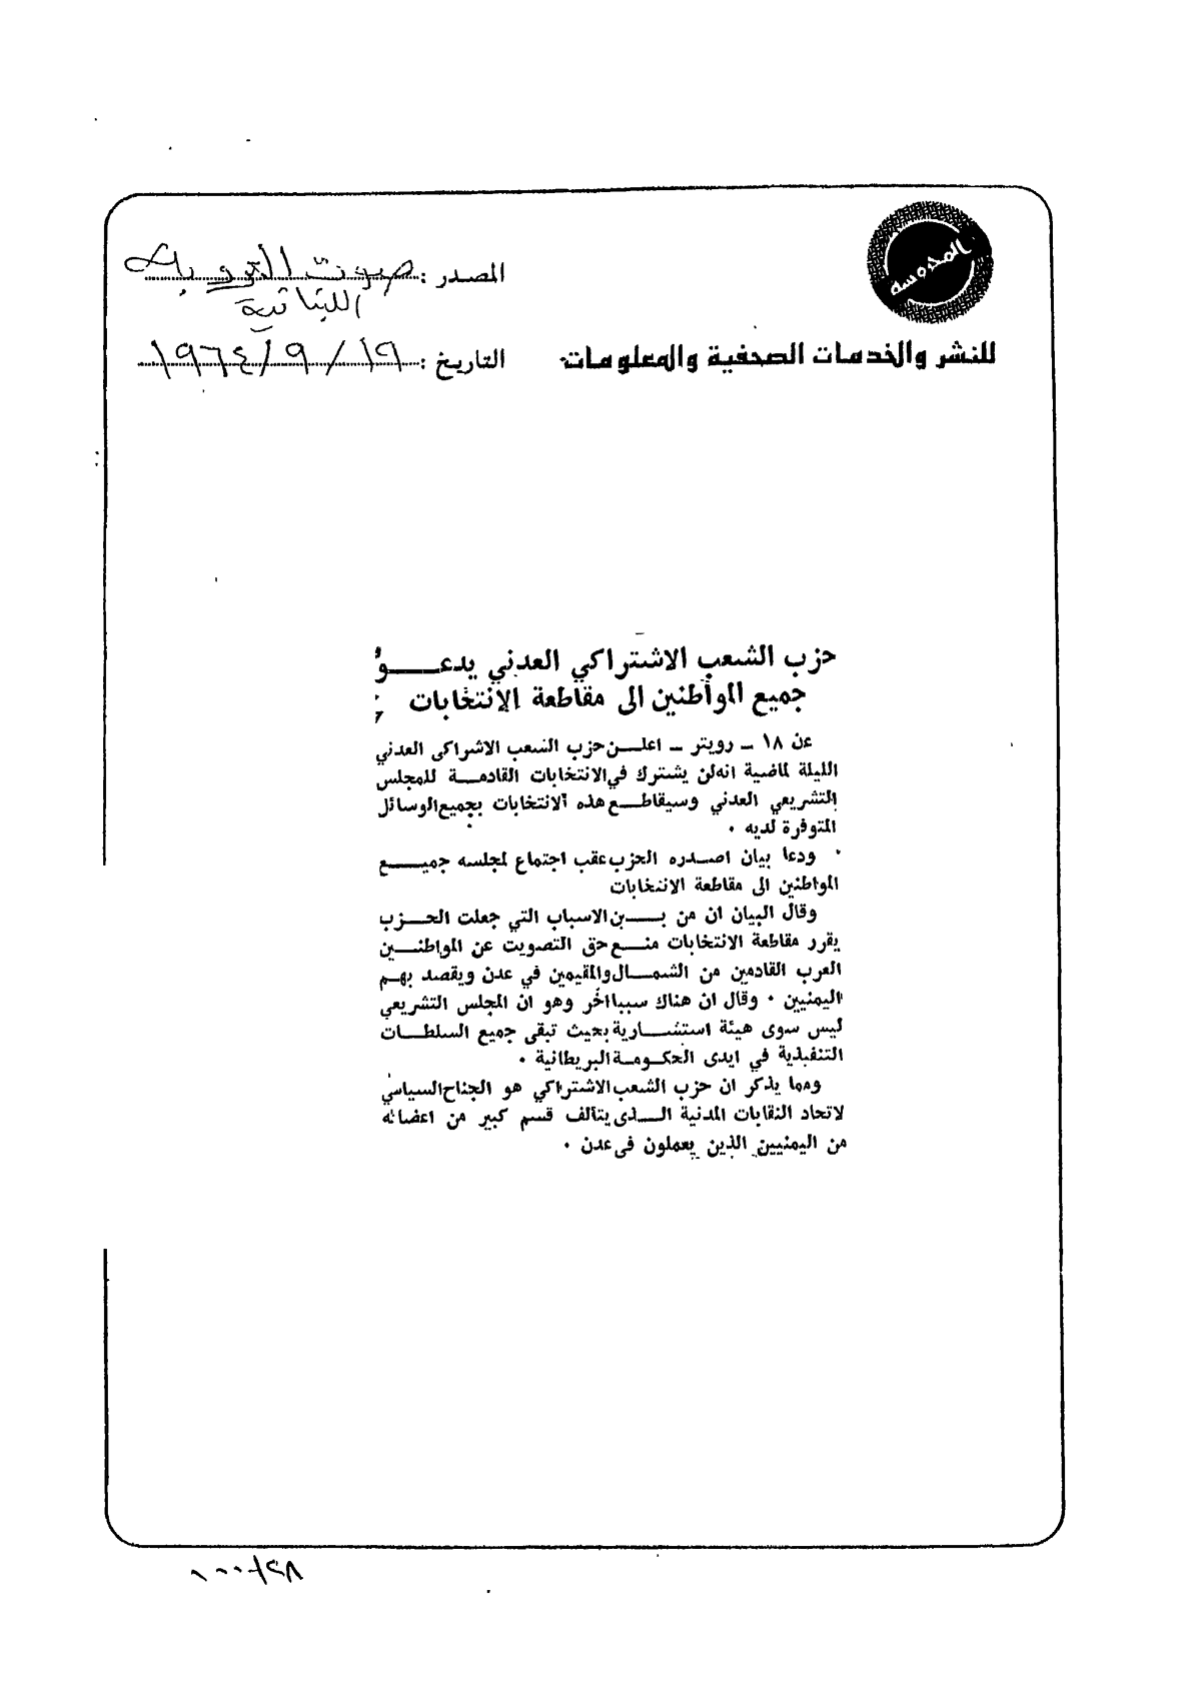 المحروسة
المصدر : صوت العروبة
اللبنانية
للنشر والخدمات الصحفية والمعلومات
التاريخ : ١٩ / ٩ / ١٩٦٤
حزب الشعب الاشتراكي العدني يدعـــو
جميع المواطنين الى مقاطعة الانتخابات
عدن ١٨ ـ رويتر ـ اعلـــن حزب الشعب الاشراكى العدني
الليلة لماضية انه لن يشترك في الانتخابات القادمـــة للمجلس
التشريعي العدني وسيقاطـــع هذه الانتخابات بجميع الوسائل
المتوفرة لديه .
ودعا بيان اصـــدره الحزب عقب اجتماع لمجلسه جميـــع
المواطنين الى مقاطعة الانتخابات
وقال البيان ان من بـــين الاسباب التي جعلت الحـــزب
يقرر مقاطعة الانتخابات منـــع حق التصويت عن المواطنـــين
العرب القادمين من الشمـــال والمقيمين في عدن ويقصد بهـم
اليمنيين . وقال ان هناك سببا اخر وهو ان المجلس التشريعي
ليس سوى هيئة استشـــارية بحيث تبقى جميع السلطـــات
التنفيذية في ايدى الحكـومـة البريطانية .
ومما يذكر ان حزب الشعب الاشتراكي هو الجناح السياسي
لاتحاد النقابات المدنية الـــذى يتالف قسم كبير من اعضائه
من اليمنيين الذين يعملون في عدن .